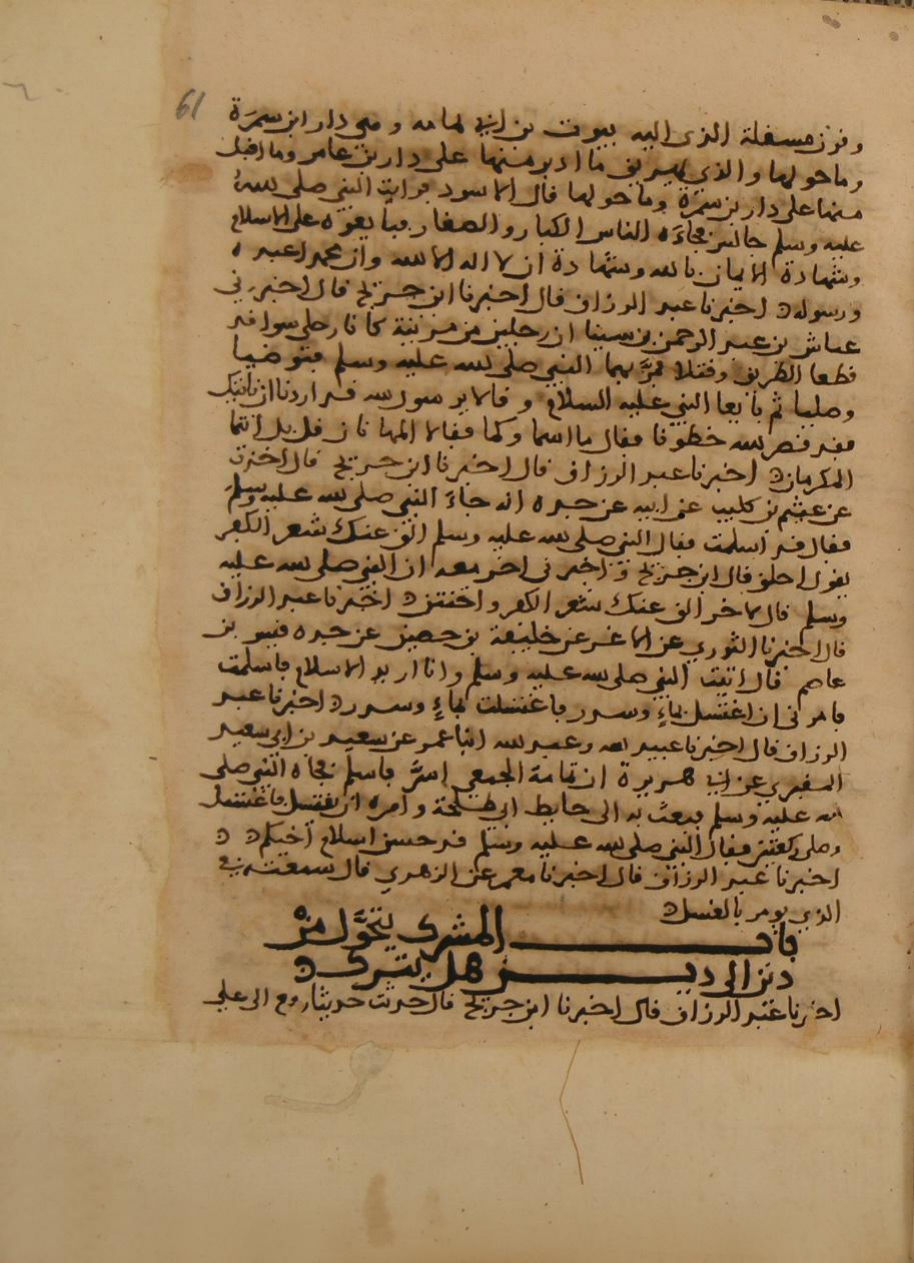 61
وقرن مسقلة الذي اليه بيوت بن ابي ثمامه وهي دار ابن سمرة
وما حولها والذي يهريق ما ادبر منها على دار بن عامر وما اقبل
منها على دار بن سمرة وما حولها قال الاسود فرايت النبي صلى الله
عليه وسلم جالس فجاءه الناس الكبار والصغار فبايعوه على الاسلام
وشهادة الايمان بالله وشهادة ان لا اله الا الله وان محمدا عبده
ورسوله ه اخبرنا عبد الرزاق قال اخبرنا ابن جريج قال اخبرني
عياش بن عبد الرحمن بن سينا ان رجلين من مزينة كانا رجلي سوا قد
قطعا الطريق وقتلا فمر بهما النبي صلى الله عليه وسلم فتوضيا
وصليا ثم بايعا النبي عليه السلام وقالا يرسول الله قد اردنا ان ناتيك
فقد قصر الله خطونا فقال ما اسماوكما فقالا المهانان قال بل انتما
المكرمان ه اخبرنا عبد الرزاق قال اخبرنا ابن جريج قال اخبرت
عن عثيم بن كليب عن ابيه عن جده انه جاء النبي صلى الله عليه وسلم
فقال قد اسلمت فقال النبي صلى الله عليه وسلم الق عنك شعر الكفر
يقول احلق قال ابن جريج واخبرني اخر معه ان النبي صلى الله عليه
وسلم قال لاخر الق عنك شعر الكفر واختتن ه اخبرنا عبد الرزاق
قال اخبرنا الثوري عن الاغر عن خليفة بن حصين عن جده قيس بن
عاصم قال اتيت النبي صلى الله عليه وسلم وانا اريد الاسلام فاسلمت
فامرني ان اغتسل بماءٍ وسدر فاغتسلت بماءٍ وسدر ه اخبرنا عبد
الرزاق قال اخبرنا عبيد الله وعبد الله ابنا عمر عن سعيد بن ابي سعيد
المقبري عن ابي هريرة ان ثمامة الجمعي اسر فاسلم فجاه النبي صلى
الله عليه وسلم فبعث به الى حايط ابي طلحة وامره ان يغتسل فاغتسل
وصلى ركعتين فقال النبي صلى الله عليه وسلم قد حسن اسلام اخيكم ه ه
اخبرنا عبد الرزاق قال اخبرنا معمر عن الزهري قال سمعته في
الذي يومر بالغسل ه
باب المشرك يتحول من
دين الى دين هل يترك ه
اخبرنا عبد الرزاق قال اخبرنا ابن جريج قال حدثت حديثا رفع الى علي